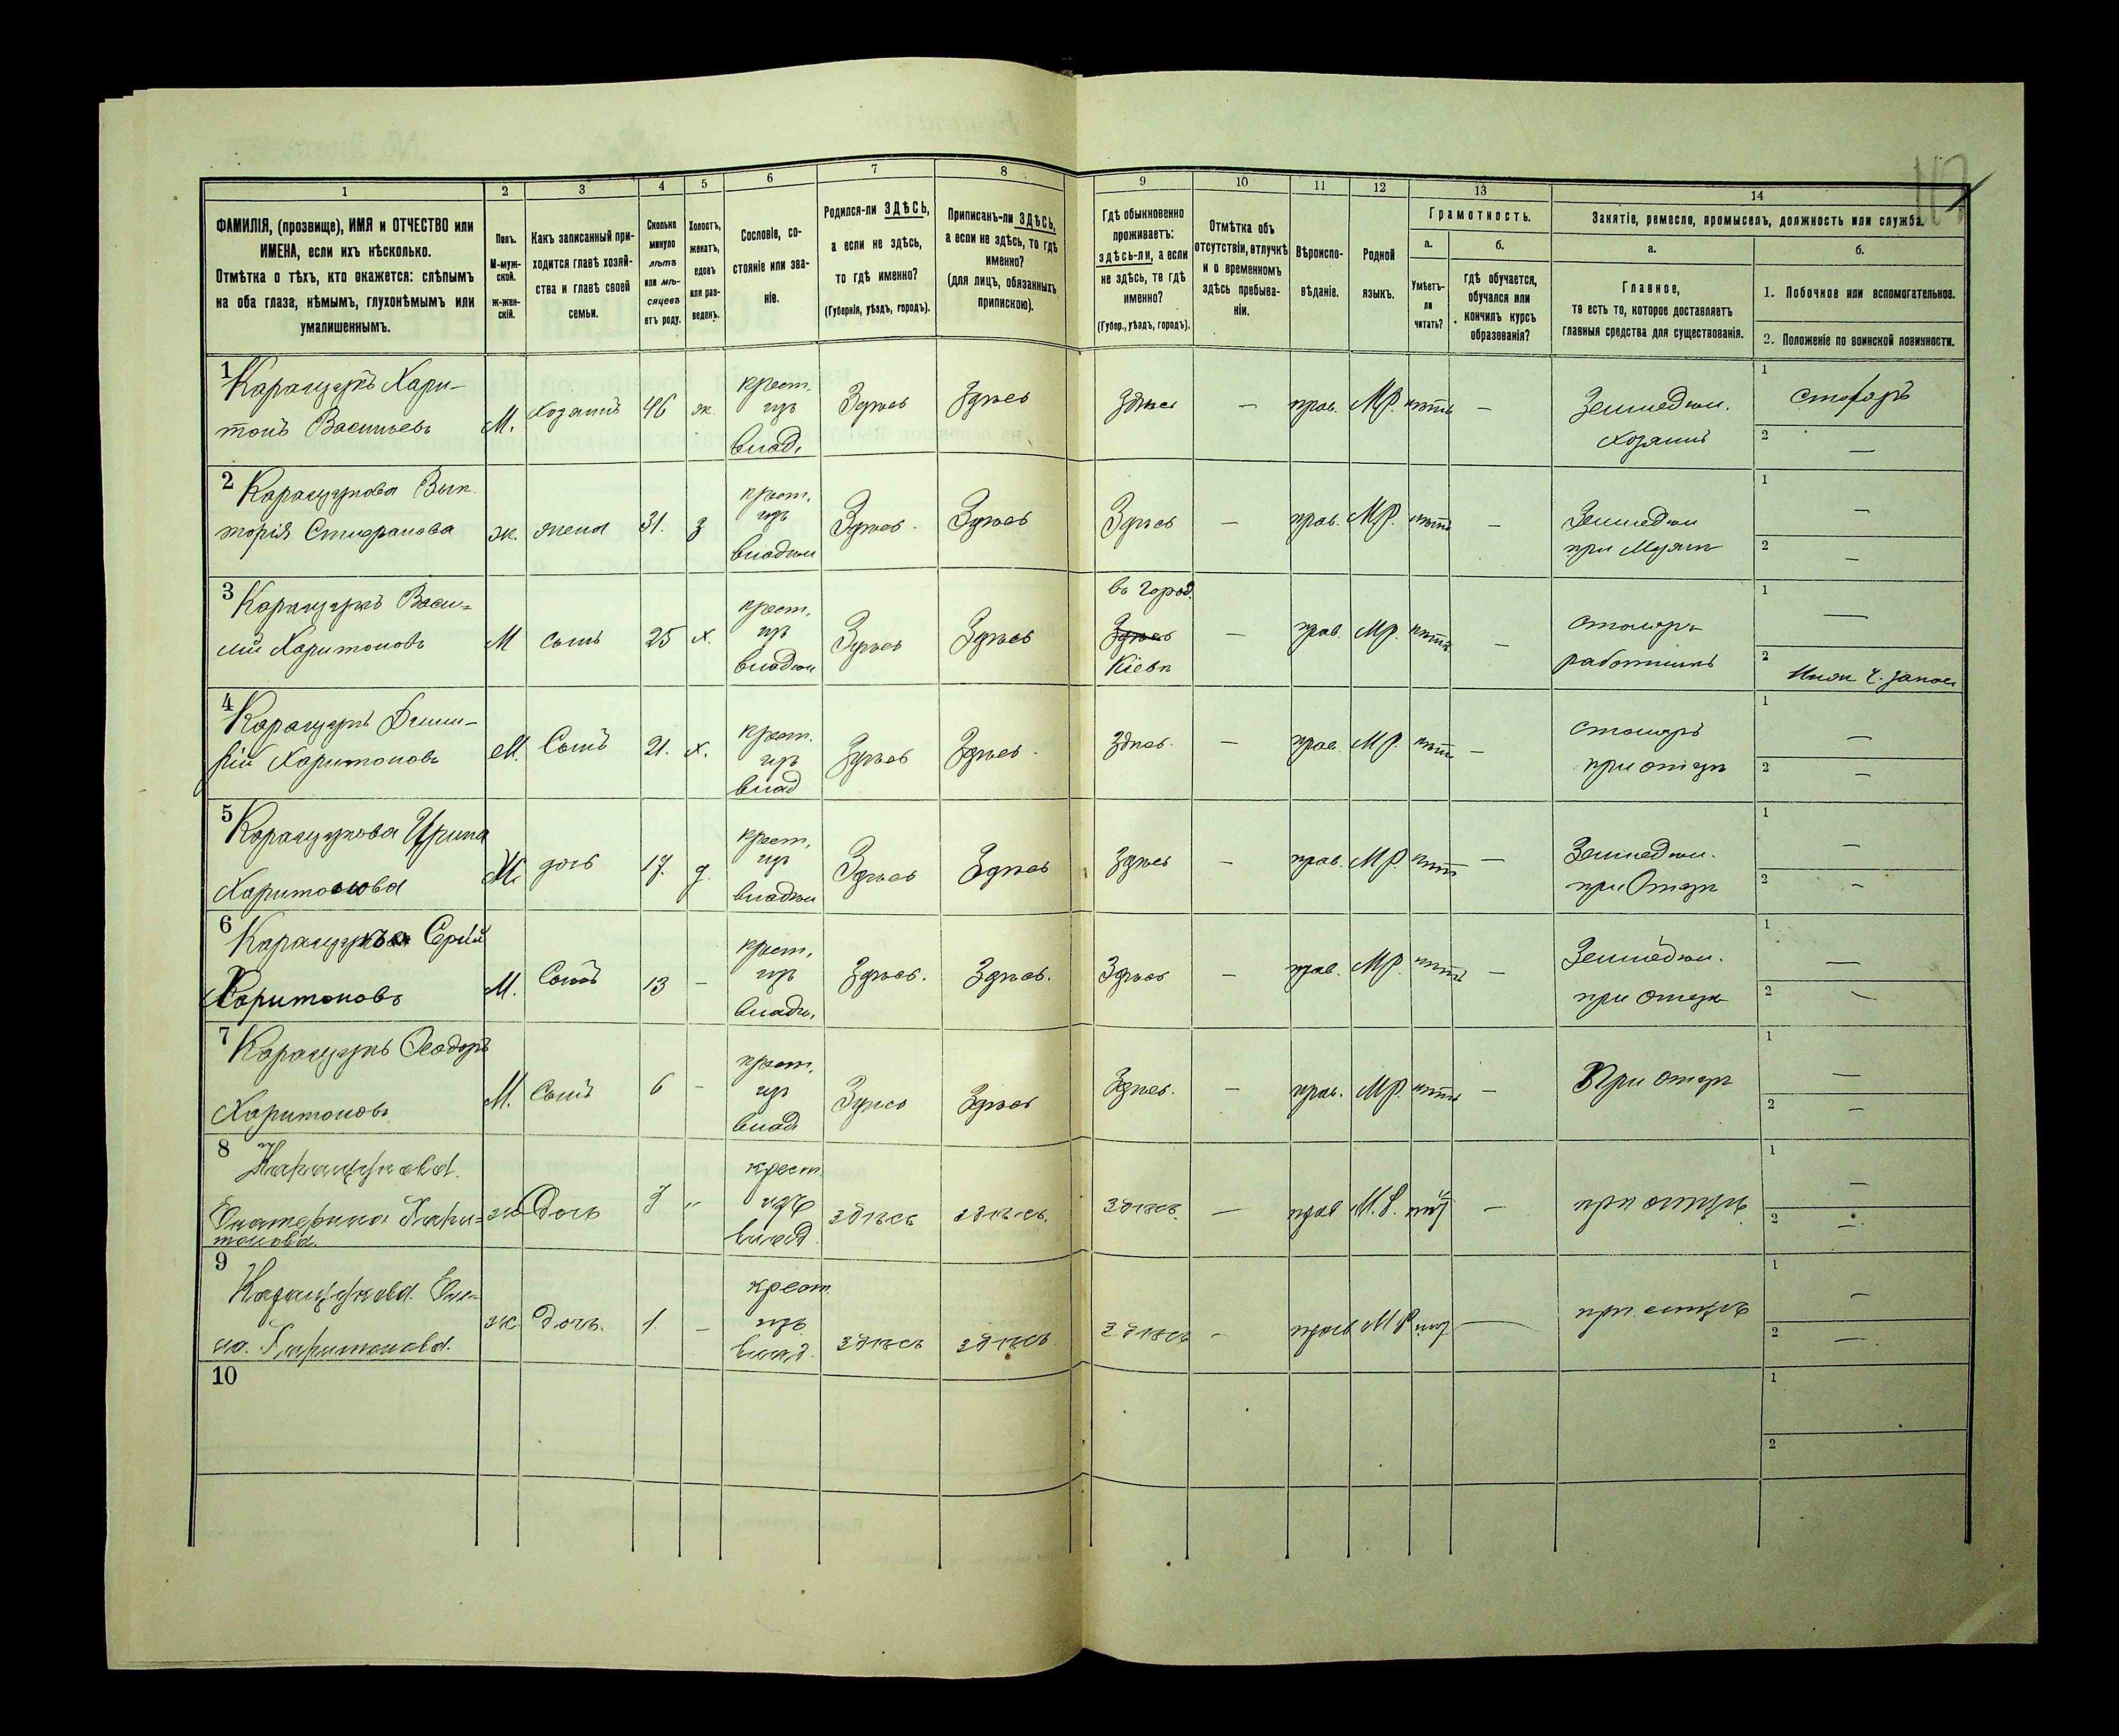 1 2 3 4 5 6 7 8 9 10 11 12 13 14
ФАМИЛІЯ, (прозвище), ИМЯ и ОТЧЕСТВО или
ИМЕНА, если ихъ нѣсколько.
Отмѣтка о тѣхъ, кто окажется: слѣпымъ
на оба глаза, нѣмымъ, глухонѣмымъ или
умалишеннымъ.
Полъ.
М-муж-
ской.
ж-жен-
скій.
Какъ записанный при-
ходится главѣ хозяй-
ства и главѣ своей
семьи.
Сколько
минуло
лѣтъ
или мѣ-
сяцевъ
отъ роду.
Холостъ,
женатъ,
вдовъ
или раз-
веденъ.
Сословіе, со-
стояніе или зва-
ніе.
Родился-ли ЗДѢСЬ,
а если не здѣсь,
то гдѣ именно?
(Губернія, уѣздъ, городъ).
Приписанъ-ли ЗДѢСЬ,
а если не здѣсь, то гдѣ
именно?
(для лицъ, обязанныхъ
припискою).
Гдѣ обыкновенно
проживаетъ:
здѣсь-ли, а если
не здѣсь, то гдѣ
именно?
(Губер., уѣздъ, городъ).
Отмѣтка объ
отсутствіи, отлучкѣ
и о временномъ
здѣсь пребыва-
ніи.
Вѣроиспо-
вѣданіе.
Родной
языкъ.
Грамотность.
а.
Умѣетъ-
ли
читать?
б.
Гдѣ обучается,
обучался или
кончилъ курсъ
образованія?
Занятіе, ремесло, промыселъ, должность или служба.
а.
Главное,
то есть то, которое доставляетъ
главныя средства для существованія.
б.
1. Побочное или вспомогательное.
2. Положеніе по воинской повинности.
1 Харитонъ Васильевъ М. хозяинъ 46 ж. крест. изъ влад. Здѣсь Здѣсь здѣсь — прав. МР. нѣтъ — Земледѣл. хозяинъ 1 столяръ 2 —
2 Викторія ж. жена 31. з крест. изъ владѣл Здѣсь Здѣсь Здѣсь — прав. МР. нѣтъ — Земледѣл при 1 — 2 —
3 Василій Харитоновъ М сынъ 25 х. крест. изъ владѣл Здѣсь Здѣсь въ город. Здѣсь Кіевѣ — прав. МР. нѣтъ — столяръ работникъ 1 — 2
4 Харитоновъ М. Сынъ 21. х. крест. изъ влад Здѣсь Здѣсь здѣсь. — прав. МР. нѣтъ — столяръ при отцѣ 1 — 2 —
5 Ирина Харитонова Ж. дочь 17. д. крест. изъ владѣл Здѣсь Здѣсь Здѣсь — прав. МР нѣтъ — Земледѣл. при Отцѣ 1 — 2 —
6 Харитоновъ М. Сынъ 13 — крест. изъ владѣ. Здѣсь. Здѣсь. Здѣсь — прав. МР. нѣтъ — Земледѣл. при отцѣ 1 — 2 —
7 Ѳеодоръ Харитоновъ М. Сынъ 6 — крест. изъ влад Здѣсь Здѣсь Здѣсь. — прав. МР. нѣтъ — При отцѣ 1 — 2 —
8 Екатерина Харитонова. ж Дочь „ крест. изъ влад. здѣсь здѣсь. здѣсь. — прав М.Р. — при отцѣ 1 — 2 —
9 Харитонова. ж. Дочь. 1. — крест. изъ влад. здѣсь здѣсь здѣсь — прав МР — при отцѣ 1 — 2 —
10 1 2